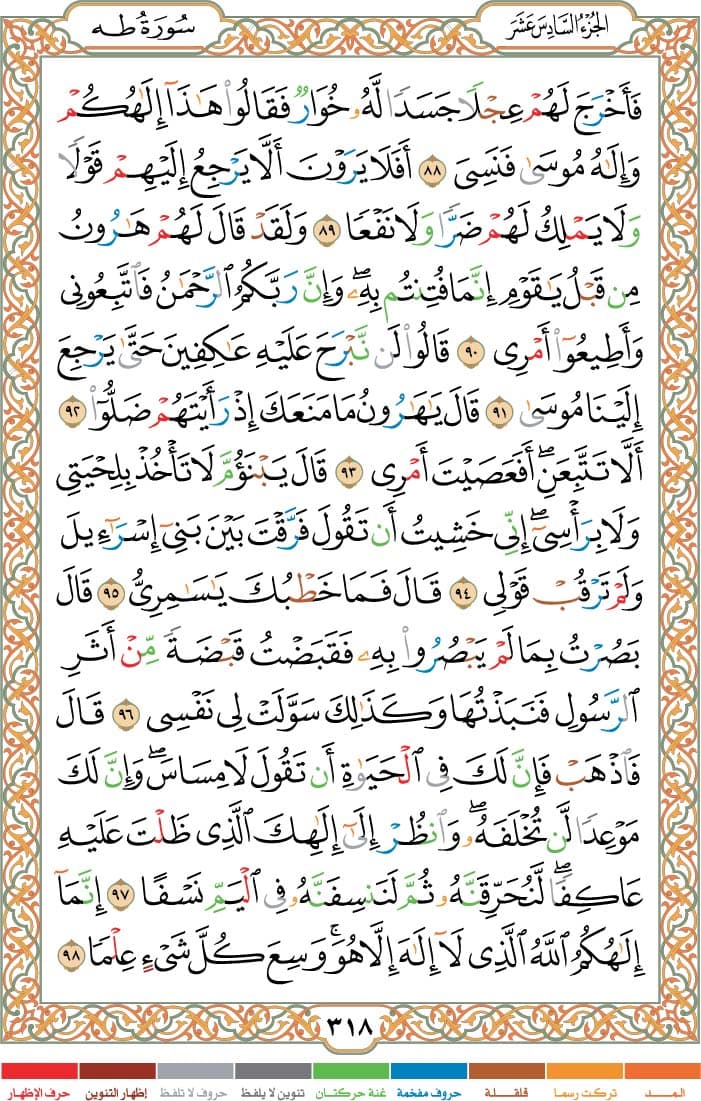 الجزء السادس عشر
سورة طه
فَأَخْرَجَ لَهُمْ عِجْلًا جَسَدًا لَّهُۥ خُوَارٌ فَقَالُوا۟ هَـٰذَآ إِلَـٰهُكُمْ
وَإِلَـٰهُ مُوسَىٰ فَنَسِىَ ٨٨ أَفَلَا يَرَوْنَ أَلَّا يَرْجِعُ إِلَيْهِمْ قَوْلًا
وَلَا يَمْلِكُ لَهُمْ ضَرًّا وَلَا نَفْعًا ٨٩ وَلَقَدْ قَالَ لَهُمْ هَـٰرُونُ
مِن قَبْلُ يَـٰقَوْمِ إِنَّمَا فُتِنتُم بِهِۦ ۖ وَإِنَّ رَبَّكُمُ ٱلرَّحْمَـٰنُ فَٱتَّبِعُونِى
وَأَطِيعُوٓا۟ أَمْرِى ٩٠ قَالُوا۟ لَن نَّبْرَحَ عَلَيْهِ عَـٰكِفِينَ حَتَّىٰ يَرْجِعَ
إِلَيْنَا مُوسَىٰ ٩١ قَالَ يَـٰهَـٰرُونُ مَا مَنَعَكَ إِذْ رَأَيْتَهُمْ ضَلُّوٓا۟ ٩٢
أَلَّا تَتَّبِعَنِ ۖ أَفَعَصَيْتَ أَمْرِى ٩٣ قَالَ يَبْنَؤُمَّ لَا تَأْخُذْ بِلِحْيَتِى
وَلَا بِرَأْسِىٓ ۖ إِنِّى خَشِيتُ أَن تَقُولَ فَرَّقْتَ بَيْنَ بَنِىٓ إِسْرَٰٓءِيلَ
وَلَمْ تَرْقُبْ قَوْلِى ٩٤ قَالَ فَمَا خَطْبُكَ يَـٰسَـٰمِرِىُّ ٩٥ قَالَ
بَصُرْتُ بِمَا لَمْ يَبْصُرُوا۟ بِهِۦ فَقَبَضْتُ قَبْضَةً مِّنْ أَثَرِ
ٱلرَّسُولِ فَنَبَذْتُهَا وَكَذَٰلِكَ سَوَّلَتْ لِى نَفْسِى ٩٦ قَالَ
فَٱذْهَبْ فَإِنَّ لَكَ فِى ٱلْحَيَوٰةِ أَن تَقُولَ لَا مِسَاسَ ۖ وَإِنَّ لَكَ
مَوْعِدًا لَّن تُخْلَفَهُۥ ۖ وَٱنظُرْ إِلَىٰٓ إِلَـٰهِكَ ٱلَّذِى ظَلْتَ عَلَيْهِ
عَاكِفًا ۖ لَّنُحَرِّقَنَّهُۥ ثُمَّ لَنَنسِفَنَّهُۥ فِى ٱلْيَمِّ نَسْفًا ٩٧ إِنَّمَآ
إِلَـٰهُكُمُ ٱللَّهُ ٱلَّذِى لَآ إِلَـٰهَ إِلَّا هُوَ ۚ وَسِعَ كُلَّ شَىْءٍ عِلْمًا ٩٨
٣١٨
المـــد تركت رسما قلقـــلة حروف مفخمة غنة حركتان تنوين لا يلفظ حروف لا تلفظ إظهار التنوين حرف الإظهار